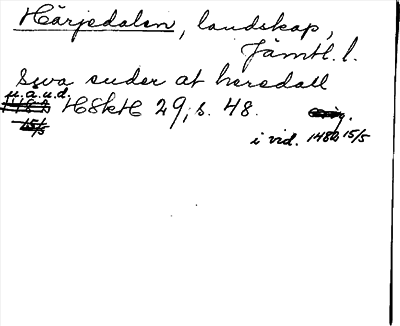 Härjedalen, landskap,
Jämtl. l.
Swa suder at heredall
u.å.u.d.
1482 HSkH 29, s. 48.
15/5
i vid. 1482 15/5